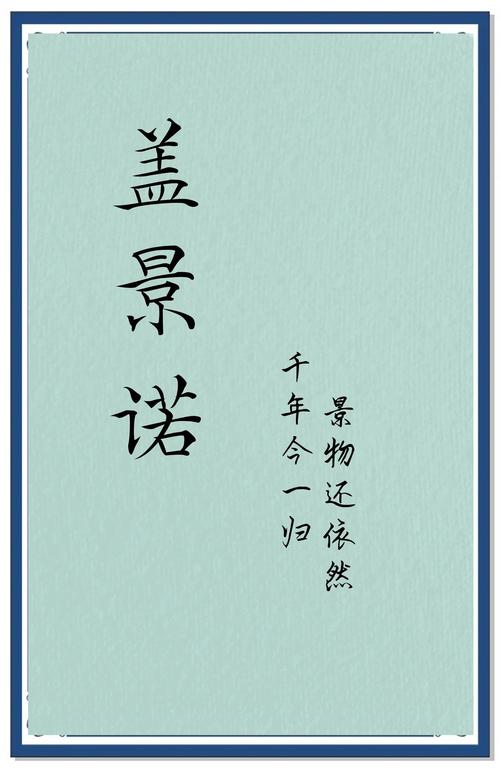 盖景诺
千年今一归
景物还依然